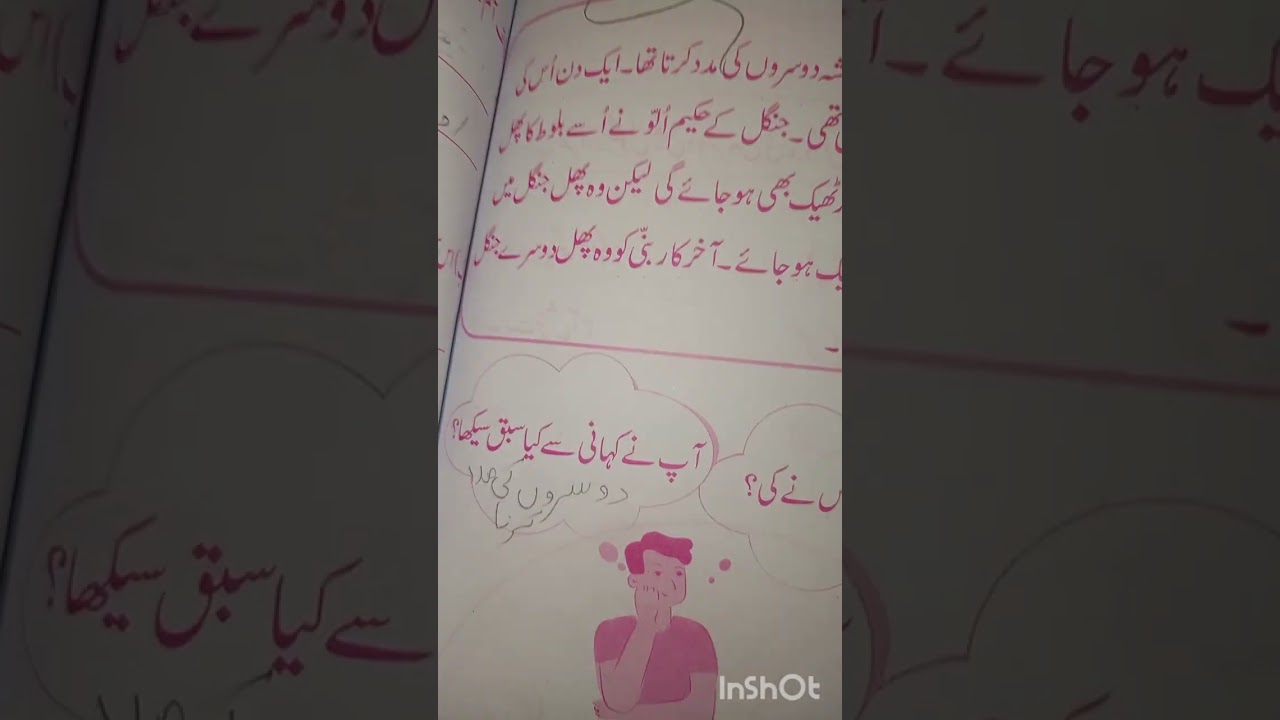 دوسروں کی مدد کرتا تھا۔ ایک دن اُس کی
تھی۔ جنگل کے حکیم اُلّو نے اُسے بلوط کا پھل
ٹھیک بھی ہو جائے گی لیکن وہ پھل جنگل میں
ہو جائے۔ آخر کار بنّی کو وہ پھل دوسرے جنگل
آپ نے کہانی سے کیا سبق سیکھا؟
دوسروں کی مدد
کرنا
نے کی؟
InShOt